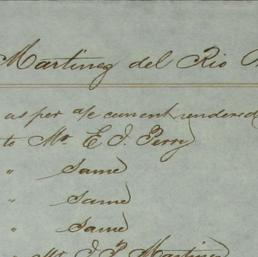 Martinez del Rio
as per a/c current rendered
to Mr. E. J. Perry
" Same
" Same
" Same
" Mr. J. P. Martinez